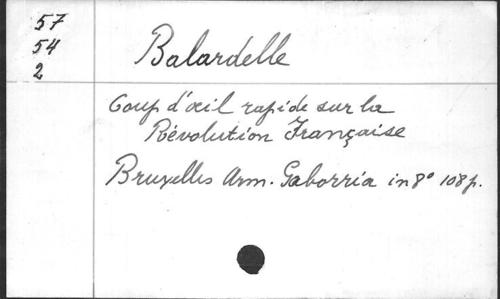 57
54
2
Balardelle
Coup d'œil rapide sur la
Révolution Française
Bruxelles Arm. Gaborria in 8° 108 p.